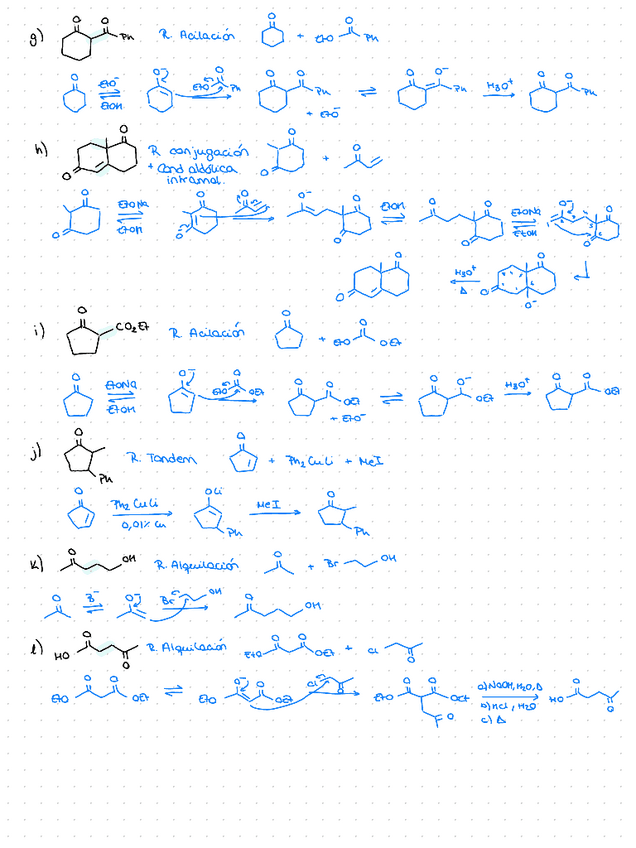 g) O O Ph R. Acilación O + EtO O Ph
O EtO⁻ ⇌ EtOH O⁻ EtO O Ph O O Ph + EtO⁻ ⇌ O O⁻ Ph H₃O⁺ O O Ph
h) O O R. conjugación + Cond aldólica intramol. O O + O
O O EtONa ⇌ EtOH O O⁻ O O⁻ O O EtOH ⇌ O O O EtONa ⇌ EtOH O⁻ O O
O O H₃O⁺ Δ O O O⁻
i) O CO₂Et R. Acilación O + EtO O OEt
O EtONa ⇌ EtOH O⁻ EtO O OEt O O OEt + EtO⁻ ⇌ O O⁻ OEt H₃O⁺ O O OEt
j) O Ph R. Tandem O + Ph₂CuLi + MeI
O Ph₂CuLi 0,01% Cu OLi Ph MeI O Ph
k) O OH R. Alquilación O + Br OH
O B⁻ ⇌ O⁻ Br OH O OH
l) HO O O R. Alquilación EtO O O OEt + Cl O
EtO O O OEt ⇌ EtO O⁻ O OEt Cl O EtO O O OEt O a) NaOH, H₂O, Δ b) HCl, H₂O c) Δ HO O O